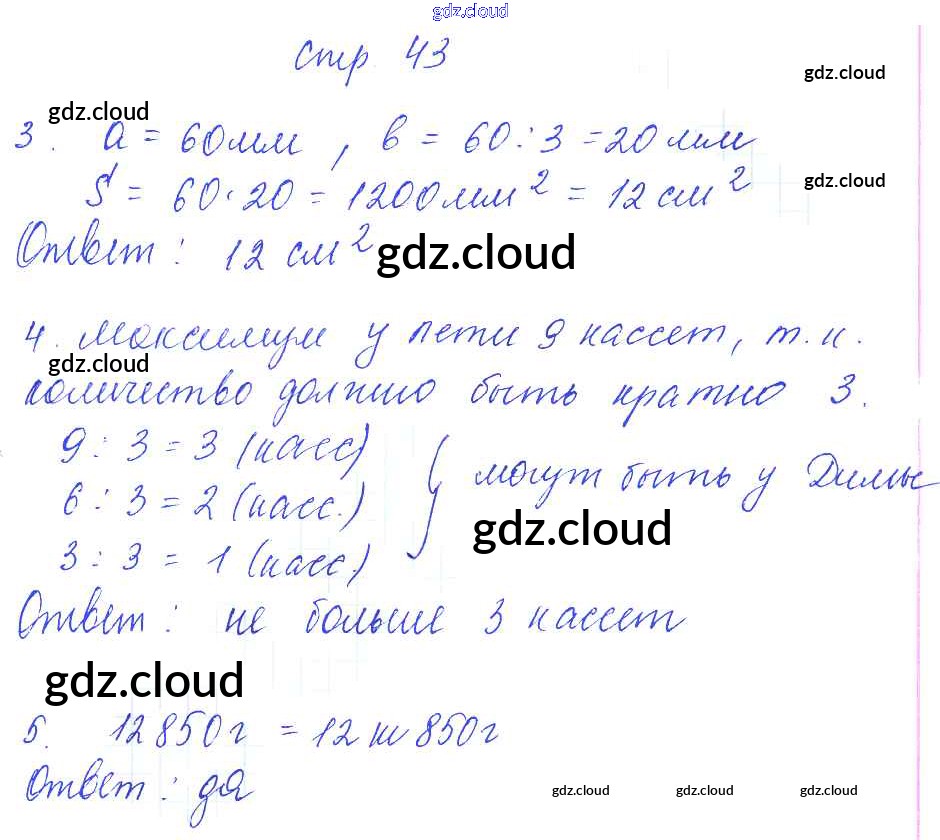 gdz.cloud
стр. 43
gdz.cloud
gdz.cloud
3. a = 60 мм, в = 60 : 3 = 20 мм
S = 60 · 20 = 1200 мм² = 12 см²
gdz.cloud
Ответ: 12 см²
gdz.cloud
4. Максимум у Пети 9 кассет, т. к.
gdz.cloud
количество должно быть кратно 3.
9 : 3 = 3 (касс)
6 : 3 = 2 (касс.) } могут быть у Димы
3 : 3 = 1 (касс.)
gdz.cloud
Ответ: не больше 3 кассет
gdz.cloud
5. 12850 г = 12 кг 850 г
Ответ: да
gdz.cloud gdz.cloud gdz.cloud